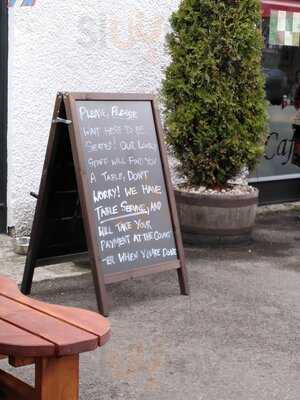 Please, Please
Wait here to be
Seated! Our Lovely
Staff will find you
a Table, Don't
Worry! We have
Table Service, and
will take your
payment at the Count
-er when you are done
Cafe